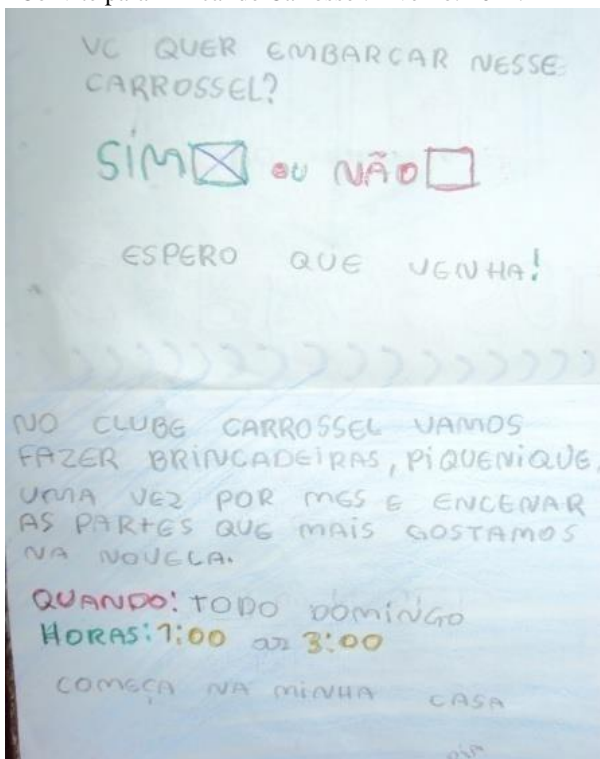 VC QUER EMBARCAR NESSE
CARROSSEL?
SIM ou NÃO
ESPERO QUE VENHA!
NO CLUBE CARROSSEL VAMOS
FAZER BRINCADEIRAS, PIQUENIQUE,
UMA VEZ POR MES E ENCENAR
AS PARTES QUE MAIS GOSTAMOS
NA NOVELA.
QUANDO: TODO DOMINGO
HORAS: 1:00 as 3:00
COMEÇA NA MINHA CASA